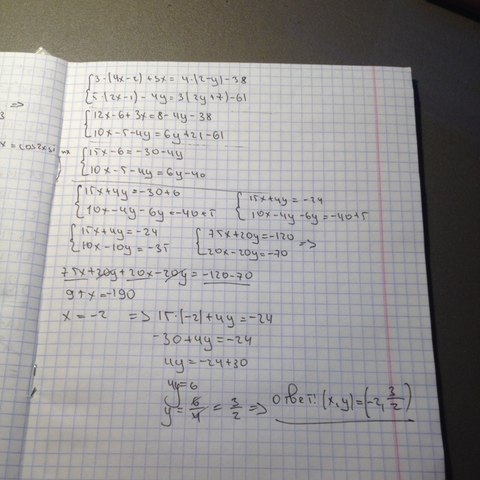 {3·(4x-2)+3x=4·(2-y)-38
{5·(2x-1)-4y=3(2y+7)-61
{12x-6+3x=8-4y-38
{10x-5-4y=6y+21-61
{15x-6=-30-4y
{10x-5-4y=6y-40
{15x+4y=-30+6 {15x+4y=-24
{10x-4y-6y=-40+5 {10x-4y-6y=-40+5
{15x+4y=-24 {75x+20y=-120
{10x-10y=-35 {20x-20y=-70 =>
75x+20y+20x-20y=-120-70
95x=-190
x=-2 => 15·(-2)+4y=-24
-30+4y=-24
4y=-24+30
4y=6
y=6/4=3/2 => ответ: (x,y)=(-2,3/2)
=>
3
x=cos2x